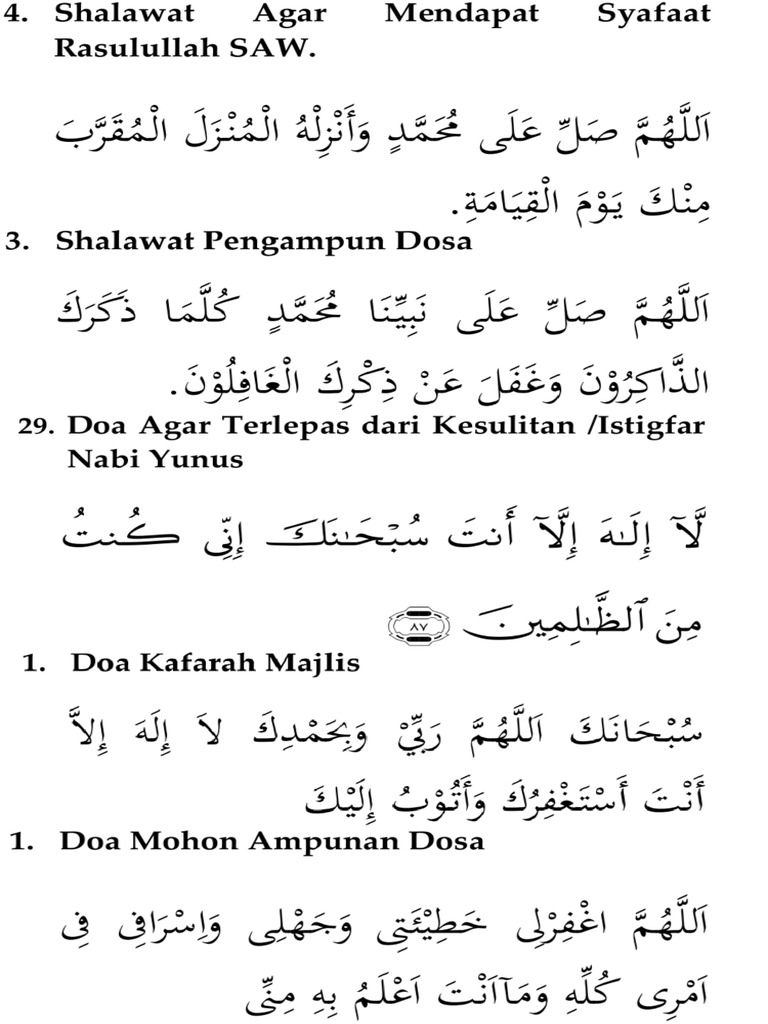 4. Shalawat Agar Mendapat Syafaat
Rasulullah SAW.
اَللَّهُمَّ صَلِّ عَلَى مُحَمَّدٍ وَأَنْزِلْهُ الْمُنْزَلَ الْمُقَرَّبَ
مِنْكَ يَوْمَ الْقِيَامَةِ.
3. Shalawat Pengampun Dosa
اَللَّهُمَّ صَلِّ عَلَى نَبِيِّنَا مُحَمَّدٍ كُلَّمَا ذَكَرَكَ
الذَّاكِرُوْنَ وَغَفَلَ عَنْ ذِكْرِكَ الْغَافِلُوْنَ.
29. Doa Agar Terlepas dari Kesulitan /Istigfar
Nabi Yunus
لَّآ إِلَـٰهَ إِلَّآ أَنتَ سُبْحَـٰنَكَ إِنِّى كُنتُ
مِنَ ٱلظَّـٰلِمِينَ ٨٧
1. Doa Kafarah Majlis
سُبْحَانَكَ اَللَّهُمَّ رَبِّيْ وَبِحَمْدِكَ لاَ إِلَهَ إِلاَّ
أَنْتَ أَسْتَغْفِرُكَ وَأَتُوْبُ إِلَيْكَ
1. Doa Mohon Ampunan Dosa
اَللَّهُمَّ اغْفِرْلِى خَطِيْئَتِى وَجَهْلِى وَاِسْرَافِى فِى
اَمْرِى كُلِّهِ وَمَآاَنْتَ اَعْلَمُ بِهِ مِنِّى